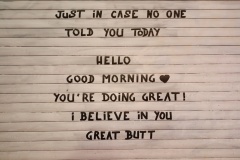 JUST IN CASE NO ONE
TOLD YOU TODAY
HELLO
GOOD MORNING ♥
YOU'RE DOING GREAT!
I BELIEVE IN YOU
GREAT BUTT